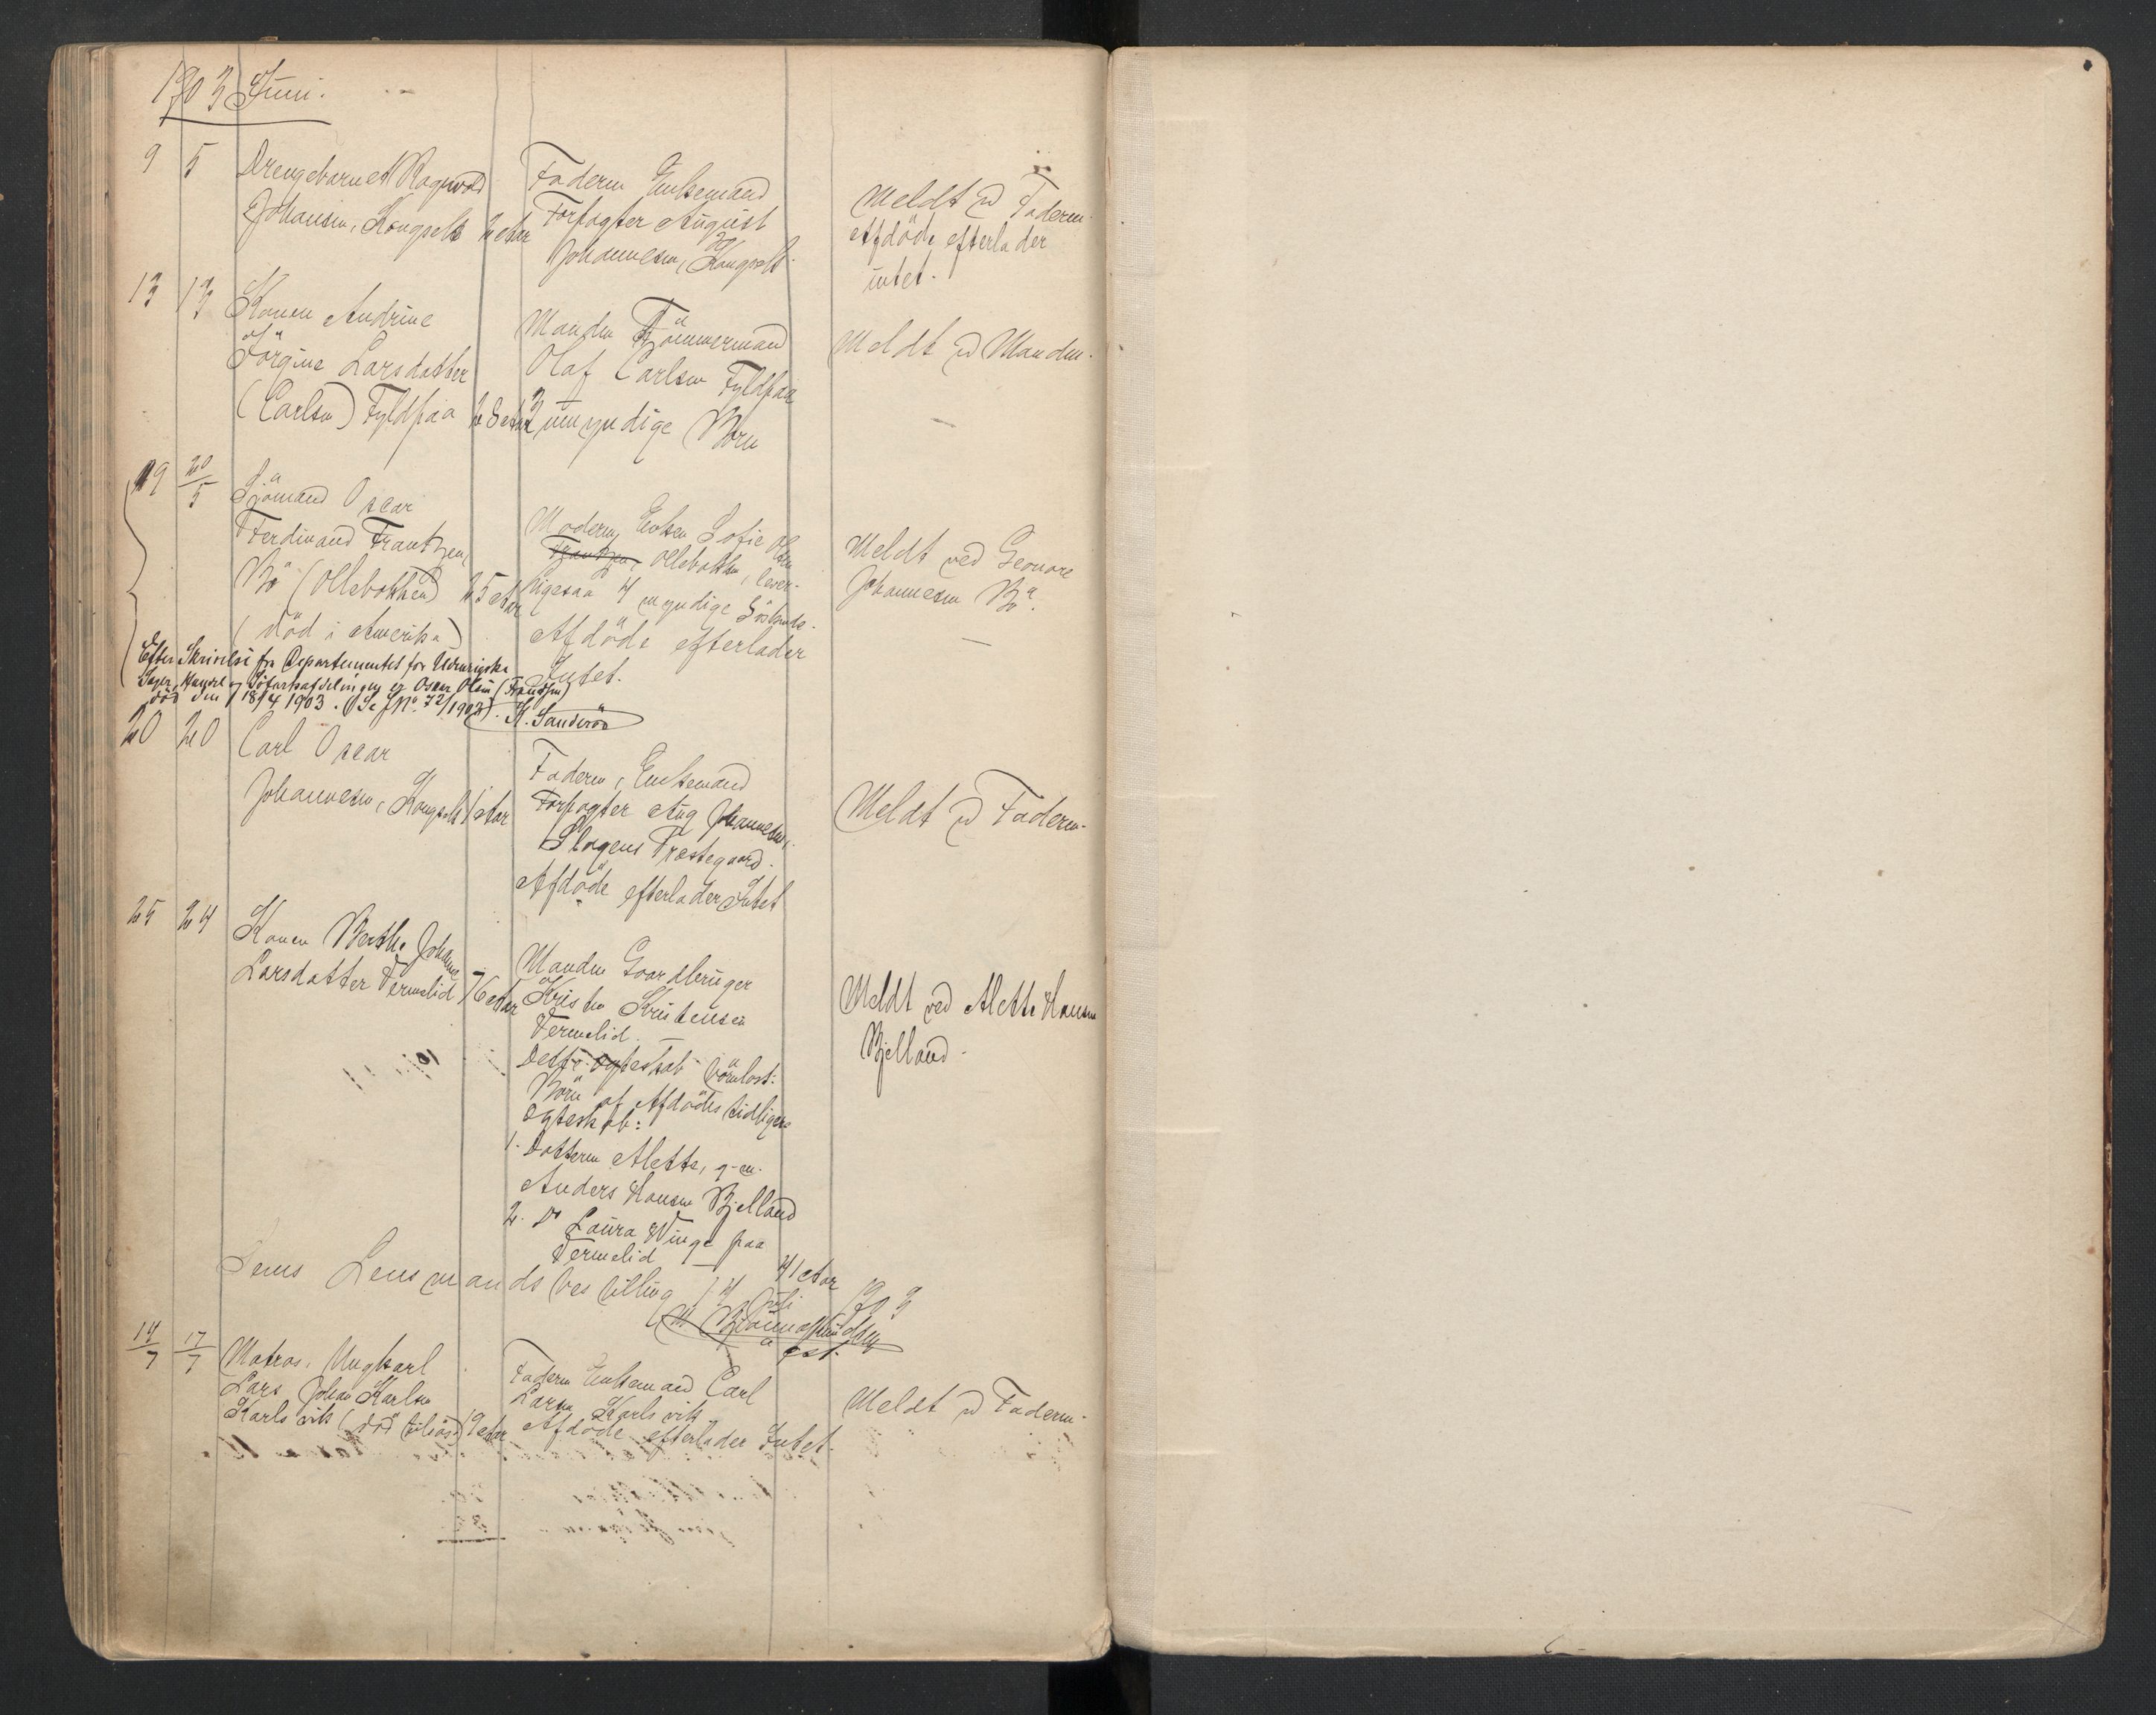 1903 Juni.
9 5 Drengebarnet Ragnvald
Johansen, Kongselt 2 Aar
Faderen Enkemand
Forpagter August
Johannesen, Kongselt.
Meldt v Faderen.
Afdöde efterlader
intet.
13 13 Konen Andrine
Jörgine Larsdatter
(Carlsen) Fyldpaa 28 Aar
Manden Tömmermand
Olaf Carlsen Fyldpaa
3 umyndige Börn
Meldt v Manden.
19 20/5 Sjömand Oscar
Ferdinand Frantzen,
Bö (Ollebakken) 25 Aar
(död i Amerika)
Moderen, Enken Sofie Olsen
Frantzen, Ollebakken, lever.
ligesaa 4 myndige Söskende.
Afdöde efterlader
Intet.
Meldt ved Leonore
Johannesen Bö.
Efter Skrivelse fra Departementet for Udenrigske
Sager, Handel og Söfartsafdelingen er Oscar Olsen (Frantzen)
död den 18/4 1903. (Se JNo 72/1903). K. Sanderöd
20 20 Carl Oscar
Johannesen, Kongselt 1 Aar
Faderen, Enkemand
Forpagter Aug Johannesen,
Slagens Præstegaard.
Afdöde efterlader Intet
Meldt v Faderen.
25 24 Konen Berthe Johanne
Larsdatter Vermelid 76 Aar
Manden Gaardbruger
Kristen Kristensen
Vermelid.
Dette Egteskab börnlöst.
Börn af Afdödes tidligere
Egteskab:
1. Datteren Alette, g. m.
Anders Hansen Bjelland
2. Do Laura Winge paa
Vermelid 41 Aar
Meldt ved Alette Hansen
Bjelland.
Sems Lensmandsbestilling 14 Juli 1903
Bjönn Amundsen
cst.
14/7 17/7 Matros, Ungkarl
Lars Johan Karlsen
Karlsvik (död tilsös) 19 Aar
Faderen Enkemand Carl
Larsen Karlsvik.
Afdöde efterlader Intet.
Meldt v Faderen.